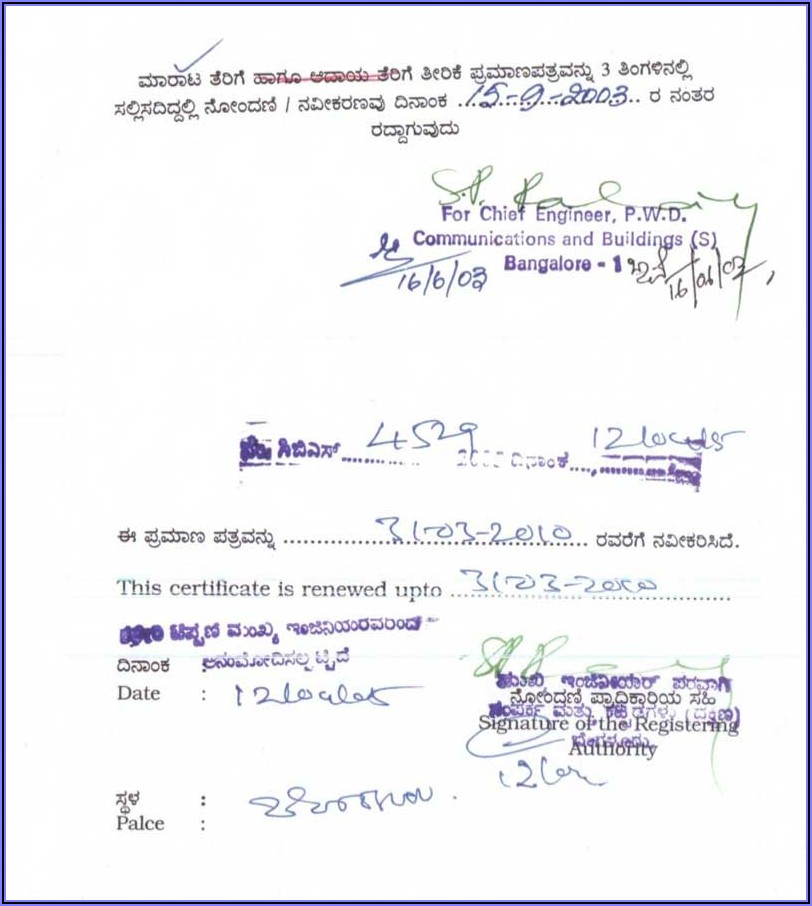 ಮಾರಾಟ ತೆರಿಗೆ ಹಾಗೂ ಆದಾಯ ತೆರಿಗೆ ತೀರಿಕೆ ಪ್ರಮಾಣಪತ್ರವನ್ನು 3 ತಿಂಗಳಿನಲ್ಲಿ
ಸಲ್ಲಿಸದಿದ್ದಲ್ಲಿ ನೋಂದಣಿ / ನವೀಕರಣವು ದಿನಾಂಕ ..15-9-2003.. ರ ನಂತರ
ರದ್ದಾಗುವುದು
For Chief Engineer, P.W.D.
Communications and Buildings (S)
Bangalore - 1
16/6/03
16/06/03
ಸಿಬಿಎಸ್ 4529 ದಿನಾಂಕ
ಈ ಪ್ರಮಾಣ ಪತ್ರವನ್ನು 31-03-2010 ರವರೆಗೆ ನವೀಕರಿಸಿದೆ.
This certificate is renewed upto 31-03-2010
ಟಿಪ್ಪಣಿ ಮುಖ್ಯ ಇಂಜಿನಿಯರವರಿಂದ
ಅನುಮೋದಿಸಲ್ಪಟ್ಟಿದೆ
ದಿನಾಂಕ :
Date :
ಇಂಜಿನಿಯರ್ ಪರವಾಗಿ
ನೋಂದಣಿ ಪ್ರಾಧಿಕಾರಿಯ ಸಹಿ
ಸಂಪರ್ಕ ಮತ್ತು ಕಟ್ಟಡಗಳು (ದಕ್ಷಿಣ)
Signature of the Registering
ಬೆಂಗಳೂರು
Authority
ಸ್ಥಳ :
Palce :